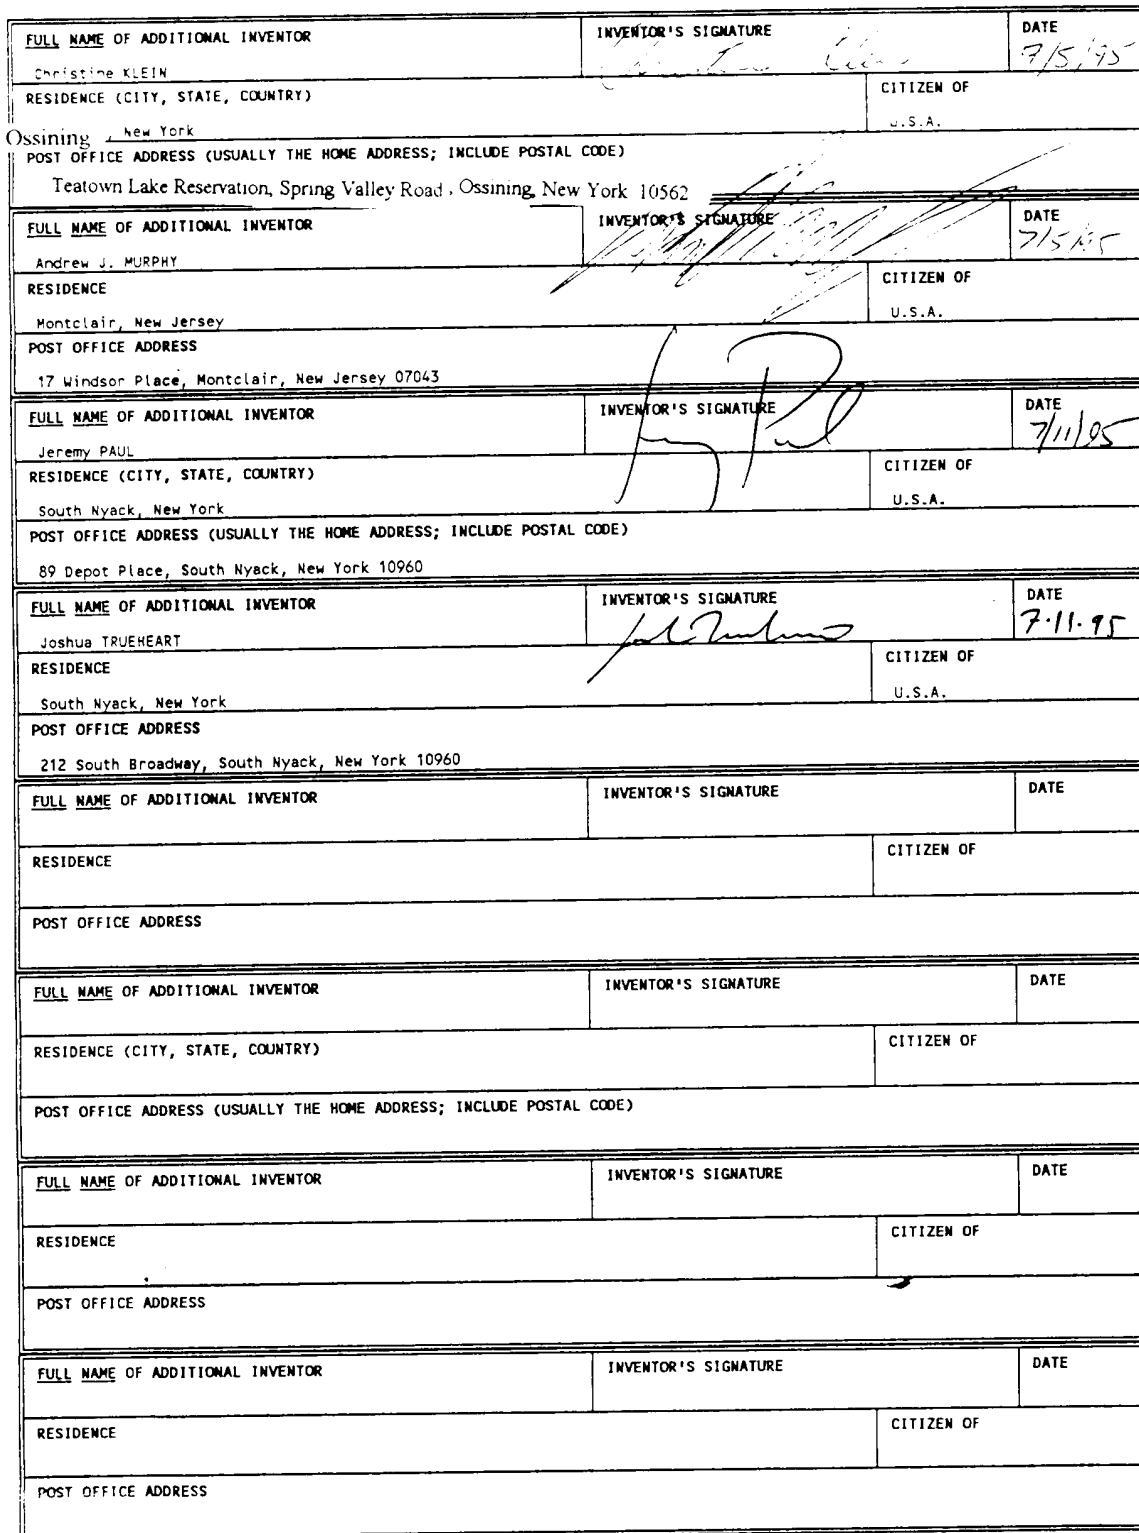 FULL NAME OF ADDITIONAL INVENTOR INVENTOR'S SIGNATURE DATE
Christine KLEIN Christine Klein 7/5/95
RESIDENCE (CITY, STATE, COUNTRY) CITIZEN OF
Ossining, New York U.S.A.
POST OFFICE ADDRESS (USUALLY THE HOME ADDRESS; INCLUDE POSTAL CODE)
Teatown Lake Reservation, Spring Valley Road, Ossining, New York 10562
FULL NAME OF ADDITIONAL INVENTOR INVENTOR'S SIGNATURE DATE
Andrew J. MURPHY 7/5/95
RESIDENCE CITIZEN OF
Montclair, New Jersey U.S.A.
POST OFFICE ADDRESS
17 Windsor Place, Montclair, New Jersey 07043
FULL NAME OF ADDITIONAL INVENTOR INVENTOR'S SIGNATURE DATE
Jeremy PAUL 7/11/95
RESIDENCE (CITY, STATE, COUNTRY) CITIZEN OF
South Nyack, New York U.S.A.
POST OFFICE ADDRESS (USUALLY THE HOME ADDRESS; INCLUDE POSTAL CODE)
89 Depot Place, South Nyack, New York 10960
FULL NAME OF ADDITIONAL INVENTOR INVENTOR'S SIGNATURE DATE
Joshua TRUEHEART 7·11·95
RESIDENCE CITIZEN OF
South Nyack, New York U.S.A.
POST OFFICE ADDRESS
212 South Broadway, South Nyack, New York 10960
FULL NAME OF ADDITIONAL INVENTOR INVENTOR'S SIGNATURE DATE
RESIDENCE CITIZEN OF
POST OFFICE ADDRESS
FULL NAME OF ADDITIONAL INVENTOR INVENTOR'S SIGNATURE DATE
RESIDENCE (CITY, STATE, COUNTRY) CITIZEN OF
POST OFFICE ADDRESS (USUALLY THE HOME ADDRESS; INCLUDE POSTAL CODE)
FULL NAME OF ADDITIONAL INVENTOR INVENTOR'S SIGNATURE DATE
RESIDENCE CITIZEN OF
POST OFFICE ADDRESS
FULL NAME OF ADDITIONAL INVENTOR INVENTOR'S SIGNATURE DATE
RESIDENCE CITIZEN OF
POST OFFICE ADDRESS